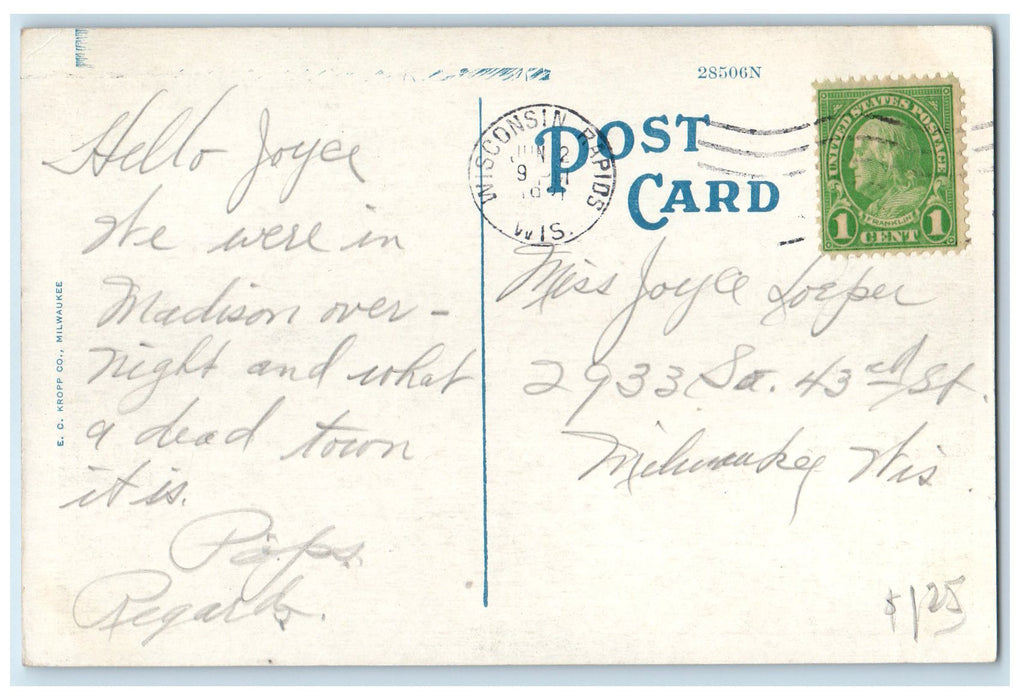 28506N
POST
CARD
WISCONSIN RAPIDS
JUN 2
9
WIS.
UNITED STATES POSTAGE
FRANKLIN
1 CENT 1
E. C. KROPP CO., MILWAUKEE
Hello Joyce
We were in
Madison over-
night and what
a dead town
it is.
Pops.
Regards.
Miss Joyce Loeper
2933 So. 43rd St.
Milwaukee Wis
$1.25